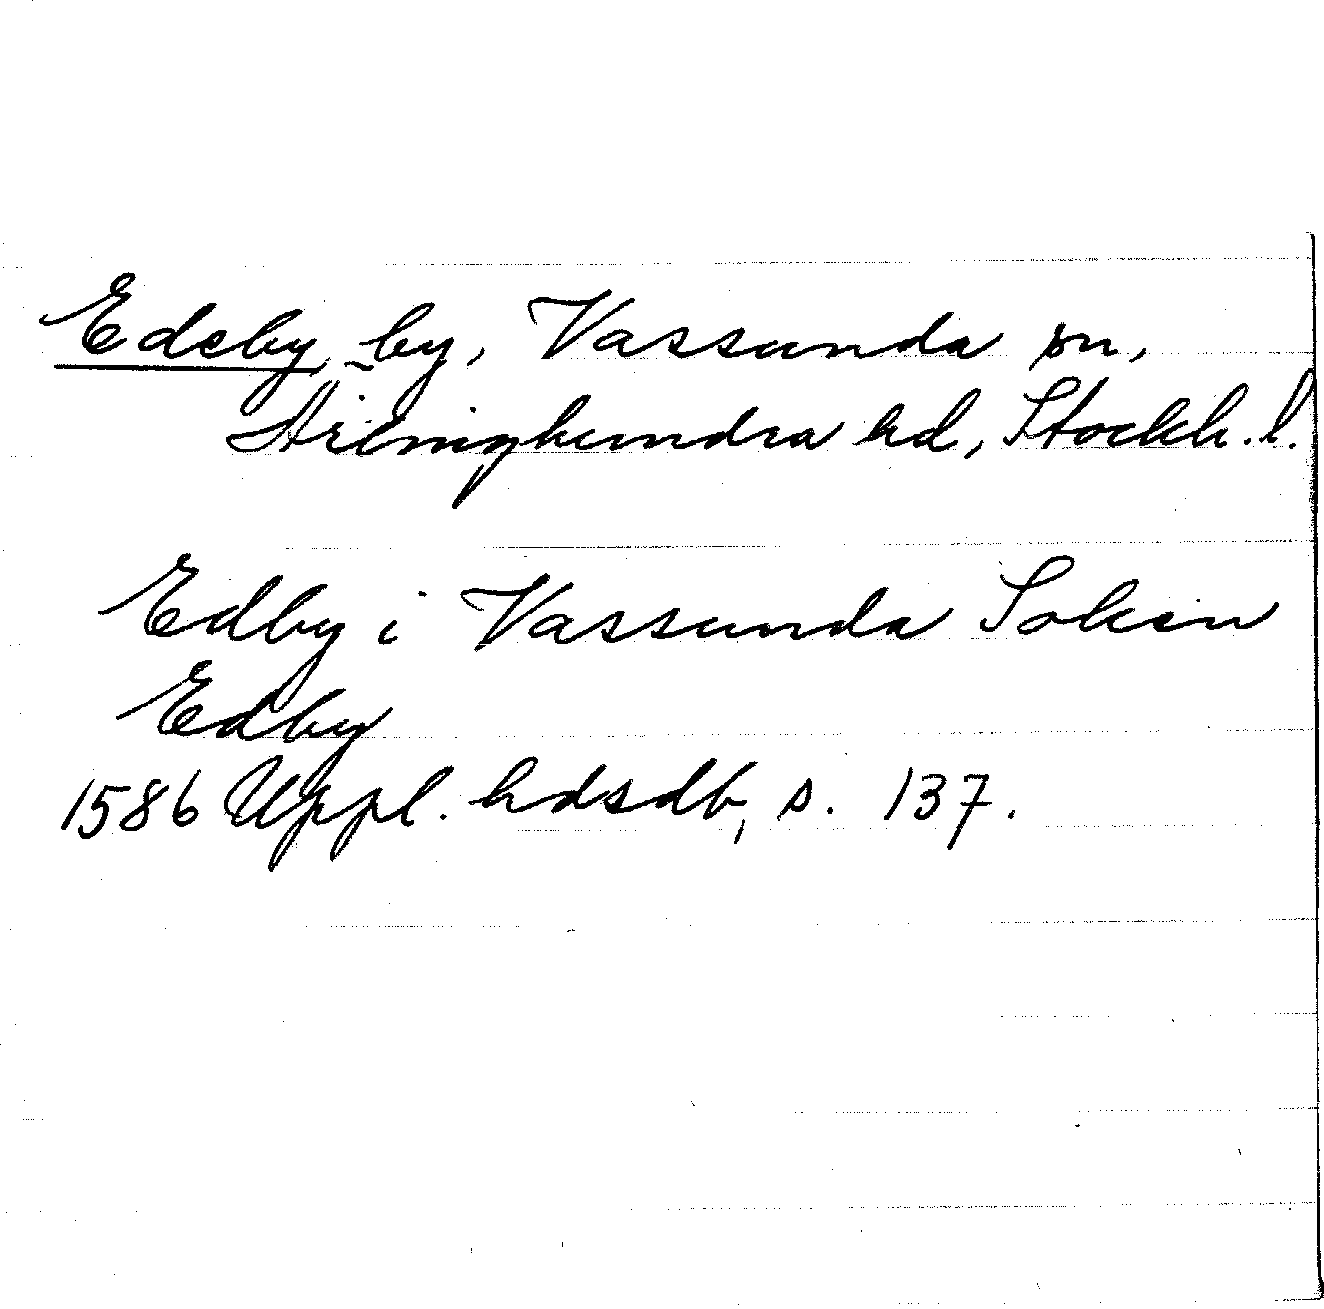 Edeby, by, Vassunda sn,
Ärlinghundra hd, Stockh. l.
Edby i Vassunda Soken
Edby
1586 Uppl. hdsdb, s. 137.